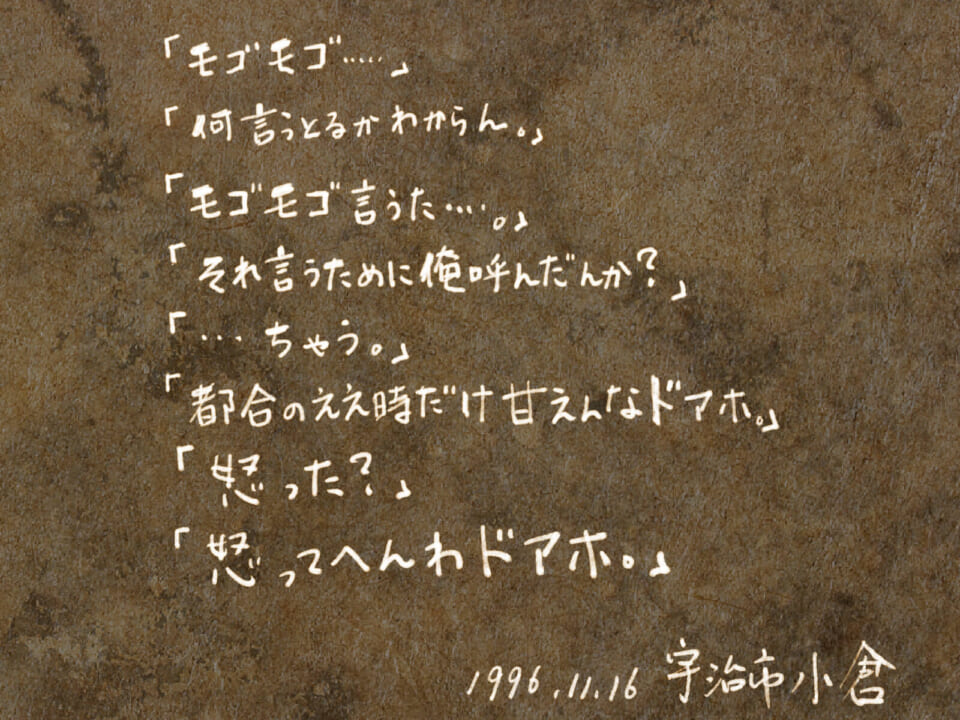 「モゴモゴ……」
「何言うとるかわからん。」
「モゴモゴ言うた…。」
「それ言うために俺呼んだんか?」
「…ちゃう。」
「都合のええ時だけ甘えんなドアホ。」
「怒った?」
「怒ってへんわドアホ。」
1996.11.16 宇治市小倉